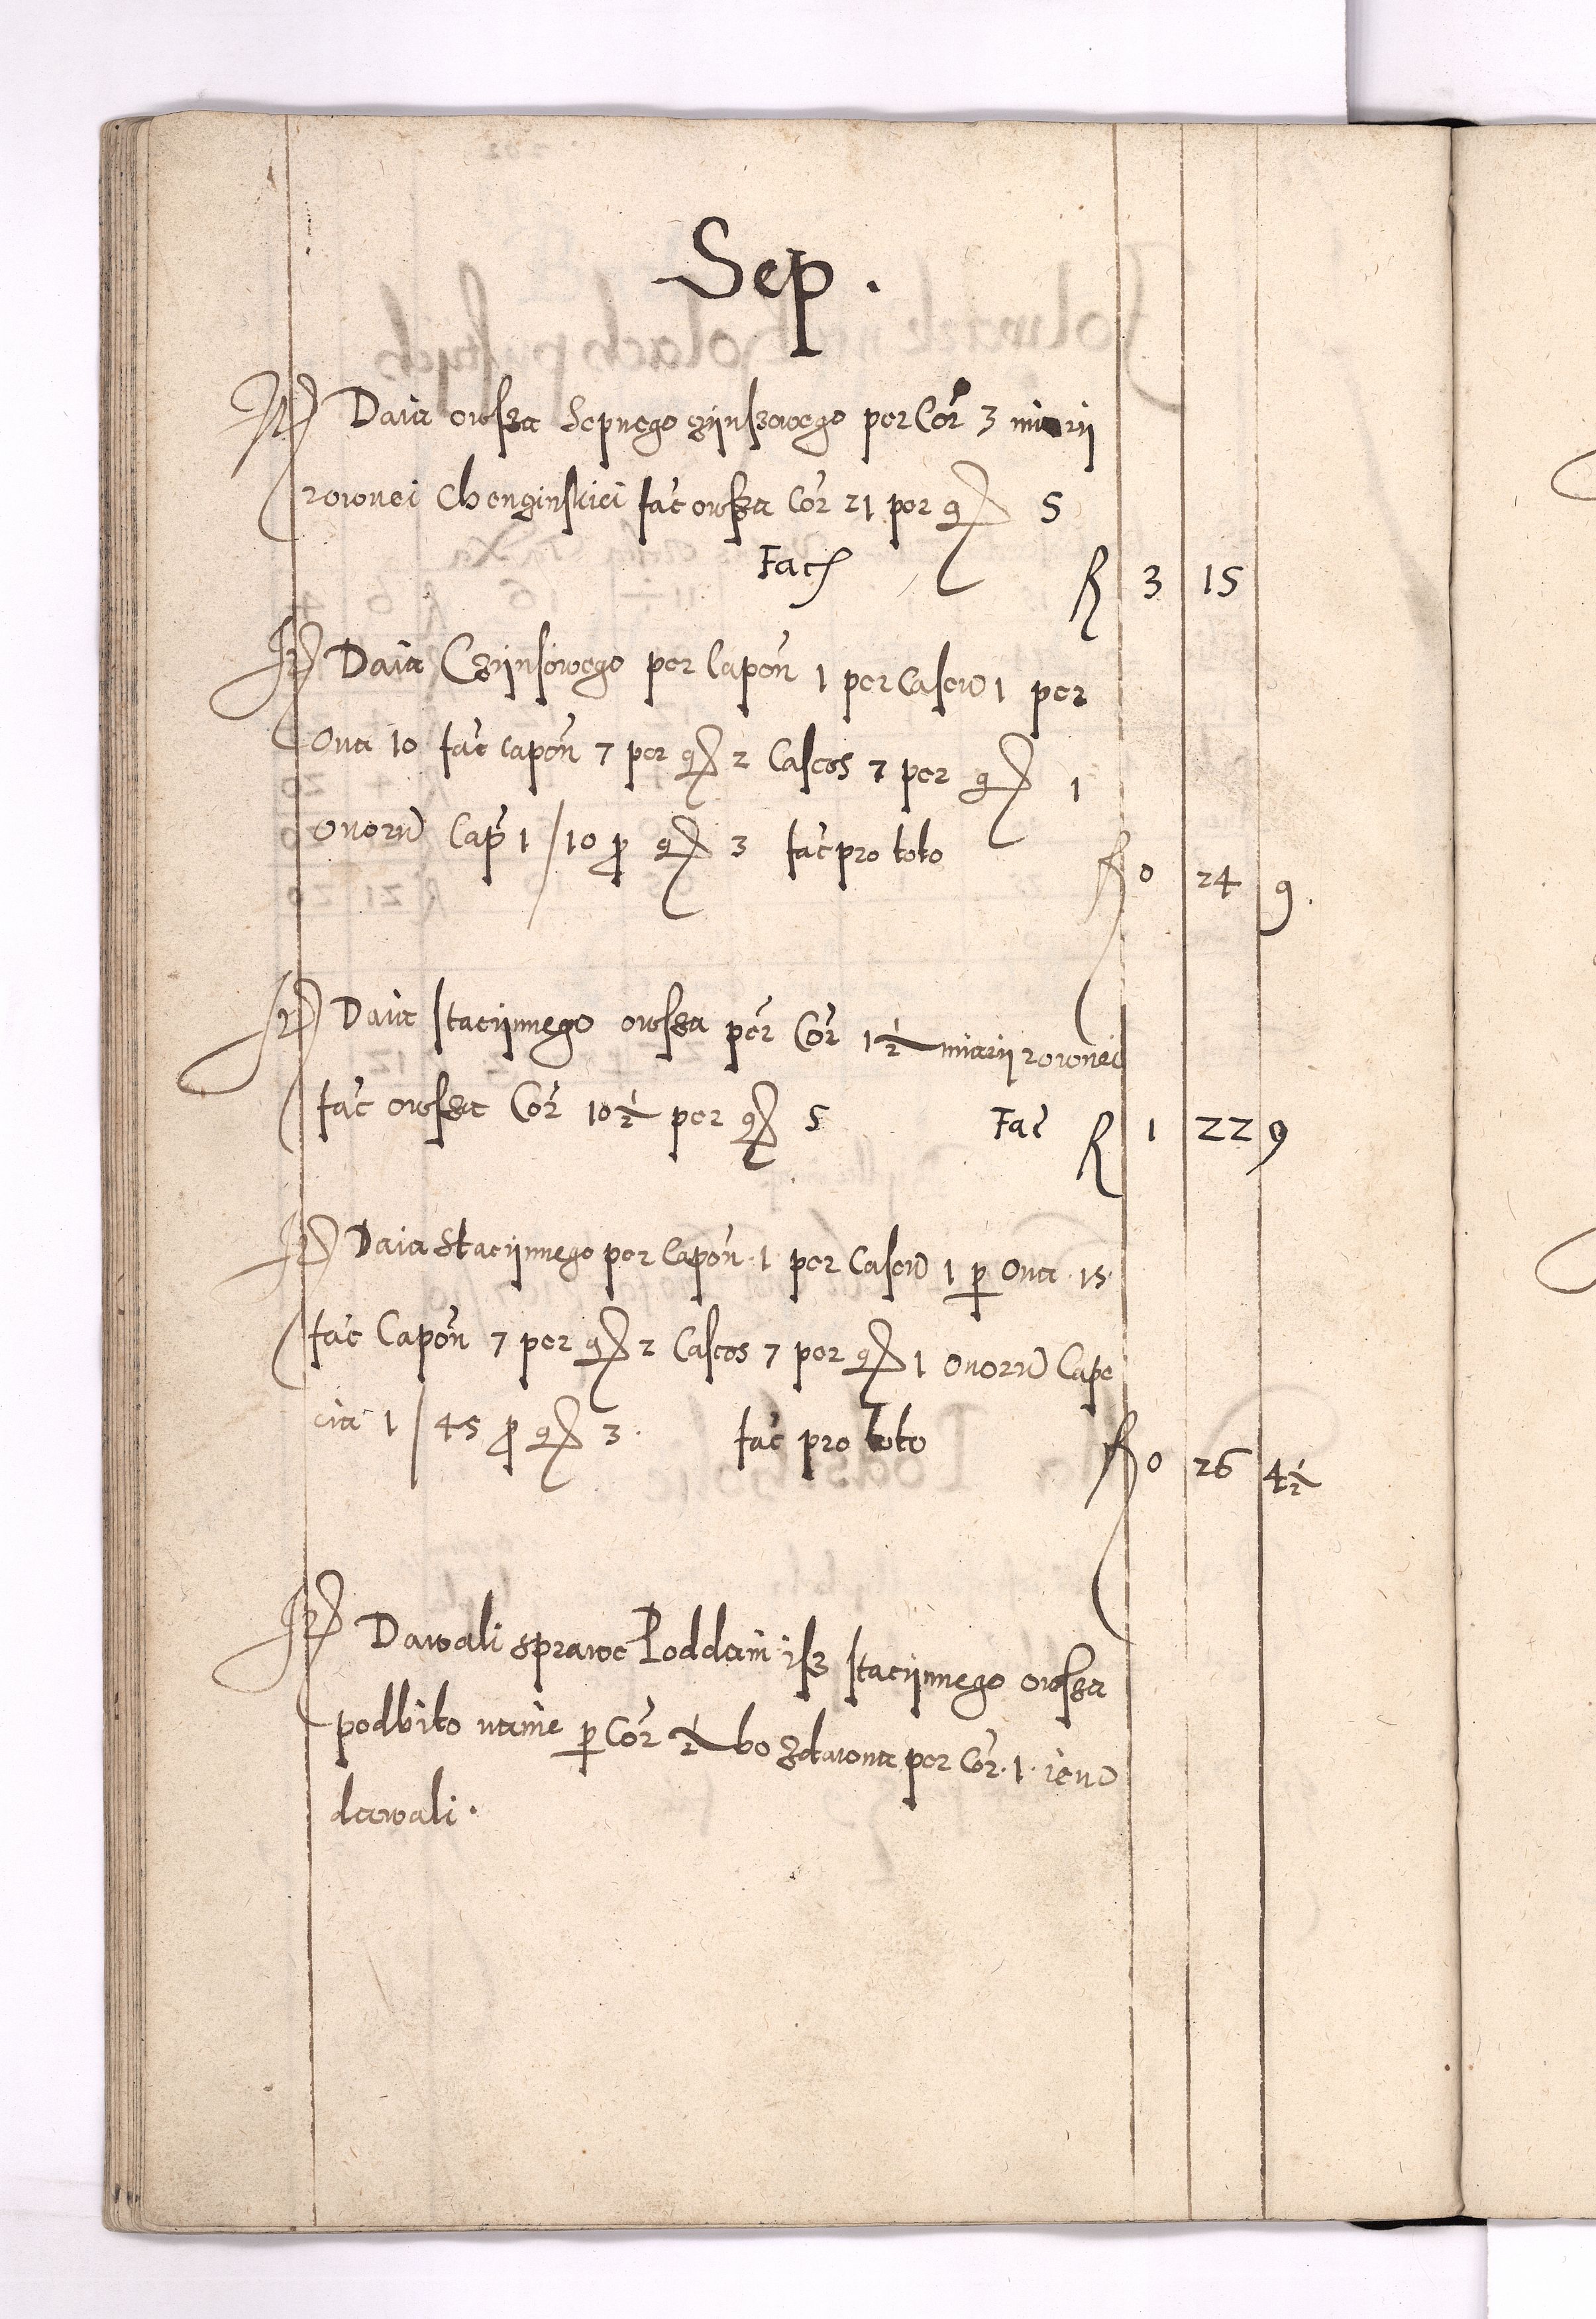 Sep.
It Daia owsza Sepnego czijnszowego per Cor 3 miarij
rownei Chenginskiei fac owsza Cor 21 per gr 5
Fac R 3 15
It Daia Czijnsowego per Capon 1 per Caseu 1 per
Oua 10 fac capon 7 per gr 2 Caseos 7 per gr 1
Ouoru Cap 1/10 p gr 3 fac pro toto R 0 24 9.
It Daia stacijnnego owsza per Cor 1½ miarij rownei
fac owsza Cor 10½ per gr 5 Fac R 1 22 9
It Daia Stacijnnego per Capon 1 per Caseu 1 p Oua 15
fac Capon 7 per gr 2 Caseos 7 per gr 1 Ouoru Cape
cia 1/45 p gr 3. fac pro toto R 0 26 4½
It Dawali sprawe Poddani isz stacijnnego owsza
podbito nanie p Cor ½ bo zdawna per Cor. 1. ieno
dawali.